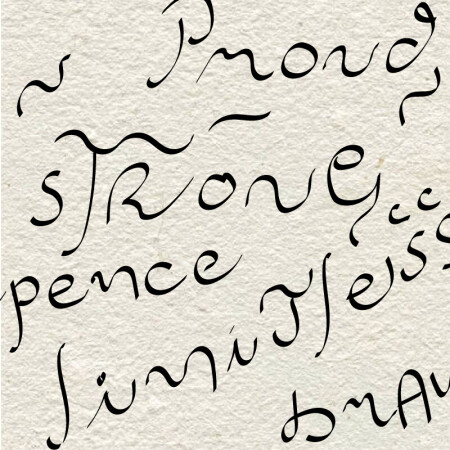 Proud
strong
pence
limitless